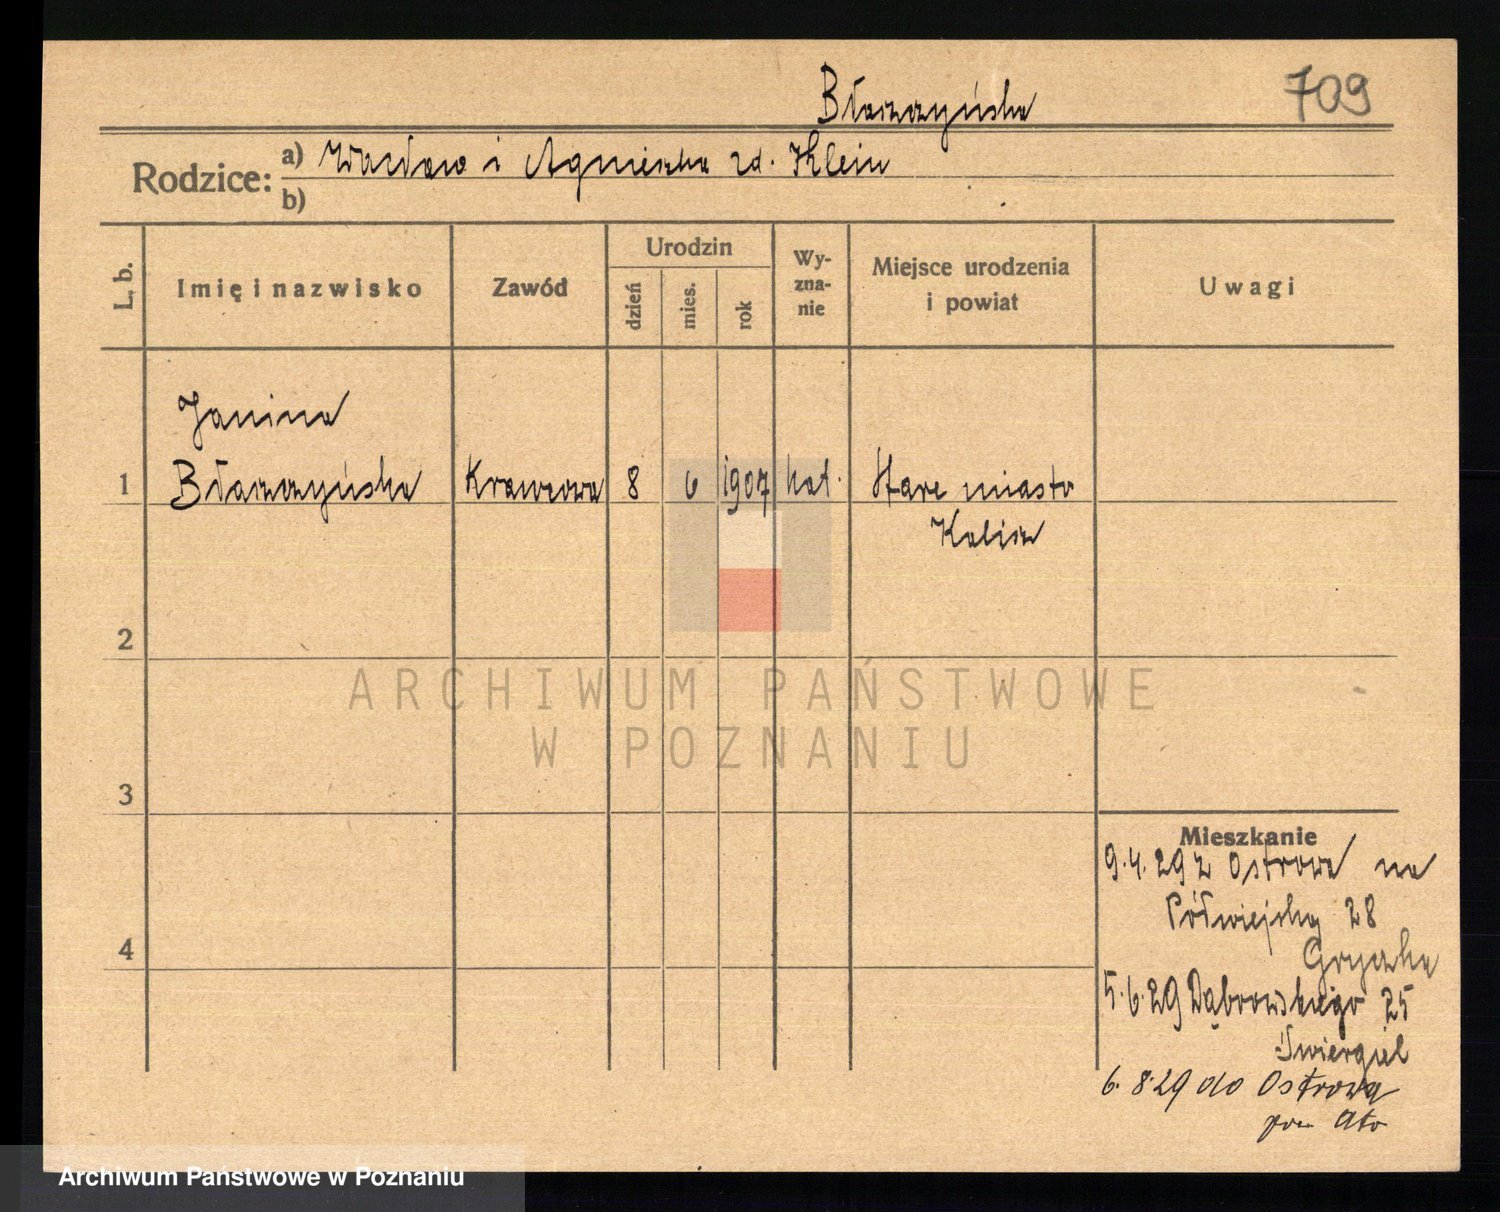 Błaszczyńska 709
Rodzice: a) Wacław i Agnieszka zd. Klein
b)
L. b. Imię i nazwisko Zawód Urodzin dzień mies. rok Wy-zna-nie Miejsce urodzenia i powiat Uwagi
Janina
1 Błaszczyńska Krawcowa 8 6 1907 kat. Stare miasto
Kalisz
2
ARCHIWUM PAŃSTWOWE
W POZNANIU
3
Mieszkanie
9.4.29 z Ostrowa na
Półwiejską 28
4 Gryczka
5.6.29 Dąbrowskiego 25
Świergiel
6.8.29 do Ostrowa
pow.
Archiwum Państwowe w Poznaniu